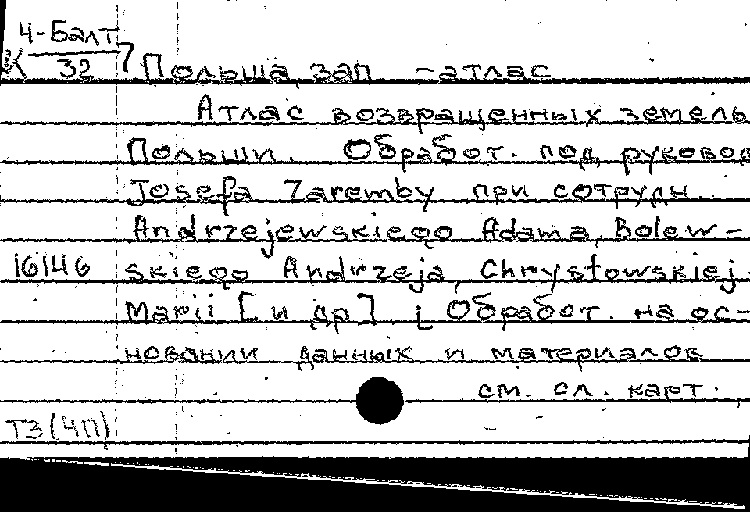 4-Балт
К 32 7 Польша, зап. - атлас
Атлас возвращенных земель
Польши. Обработ. под руковод
Josefa Zaremby при сотрудн.
Andrzejewskiego Adama, Bolew-
16146 skiego Andrzeja, Chrystowskiej
Marii [и др]. [Обработ. на ос-
новании данных и материалов
см. сл. карт.
ТЗ (4П)